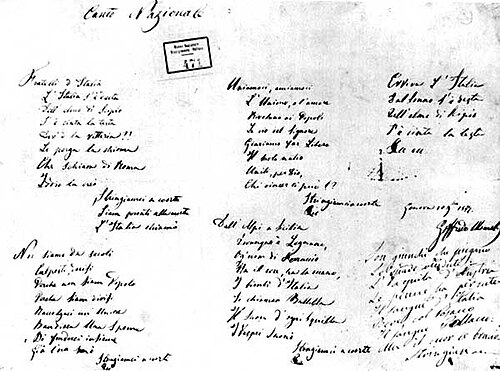 Canto Nazionale
471
Fratelli d'Italia
L'Italia s'è desta
Dell'elmo di Scipio
S'è cinta la testa
Dov'è la vittoria?!!
Le porga la chioma
Che schiava di Roma
Iddio la creò
Stringiamci a coorte
Siam pronti alla morte
L'Italia chiamò
Noi siamo da secoli
Calpesti, derisi
Perché non siam Popolo
Perché siam divisi
Raccolgaci un'Unica
Bandiera una Speme
Di fonderci insieme
Già l'ora suonò
Stringiamci a coorte
Uniamoci, amiamoci
L'Unione, e l'amore
Rivelano ai Popoli
Le vie del Signore
Giuriamo Far Libero
Il suolo natio
Uniti, per Dio,
Chi vincer ci può!?
Stringiamci a coorte
Dall'Alpi a Sicilia
Dovunque è Legnano,
Ogn'uom di Ferruccio
Ha il core, ha la mano,
I bimbi d'Italia
Si chiaman Balilla
Il Suon d'ogni squilla
I Vespri Suonò
Stringiamci a coorte
Evviva l'Italia
Dal sonno s'è desta
Dell'elmo di Scipio
S'è cinta la testa
Genova
Son giunchi che piegano
Le spade vendute
L'Aquila d'Austria
Le penne ha perdute
Il sangue d'Italia
Il sangue Polacco